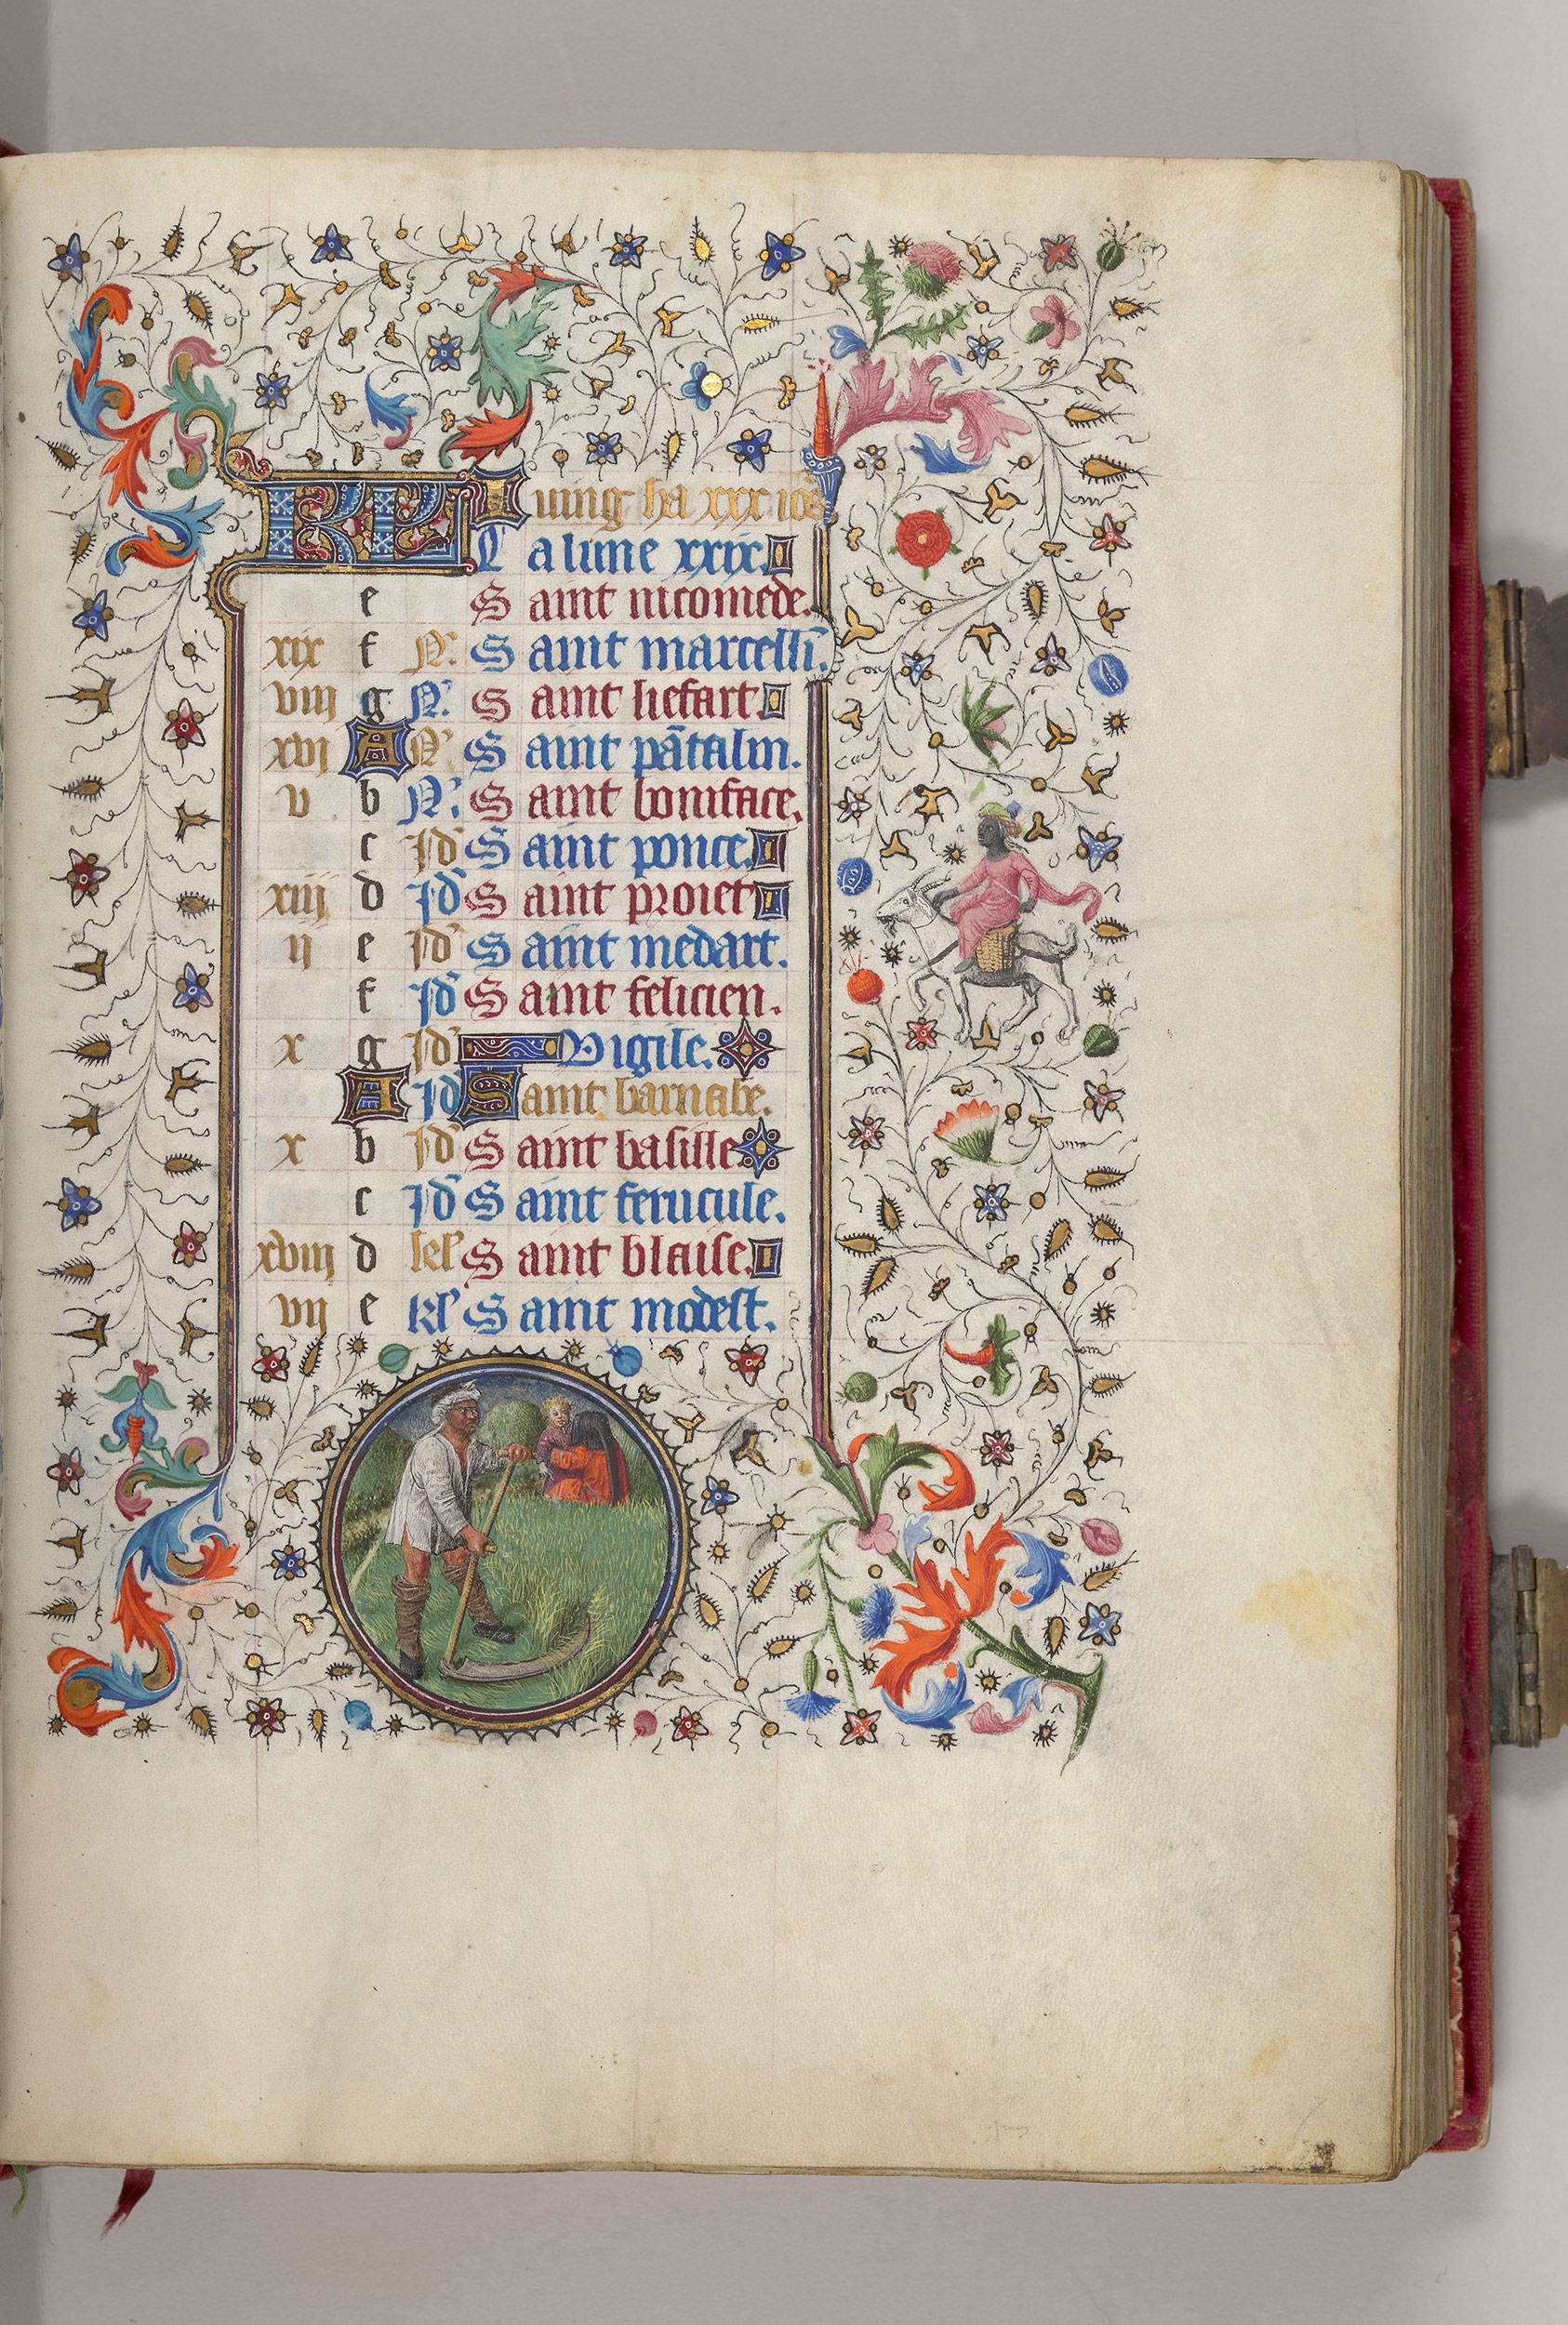 KL Iuing ha xxx iōs
La lune xxix.
e Saint nicomede.
xix f N. Saint marcelli̅.
viii g N. Saint liefart.
xvi A N. Saint pātalin.
v b N. Saint boniface.
c Id Saint ponce.
xiii d Id Saint proiet
ii e Id Saint medart.
f Id Saint felicien.
x g Id Vigile.
A Id Saint barnabe.
x b Id Saint basille
c Id Saint ferucule.
xviii d kl Saint blaise.
vii e kl Saint modest.
6